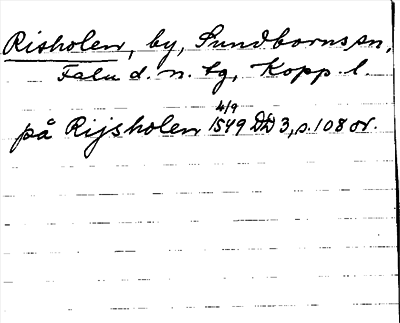 Risholen, by, Sundborns sn,
Falu d. n. tg, Kopp. l.
4/9
på Rijsholen 1549 DD 3, s. 108 or.